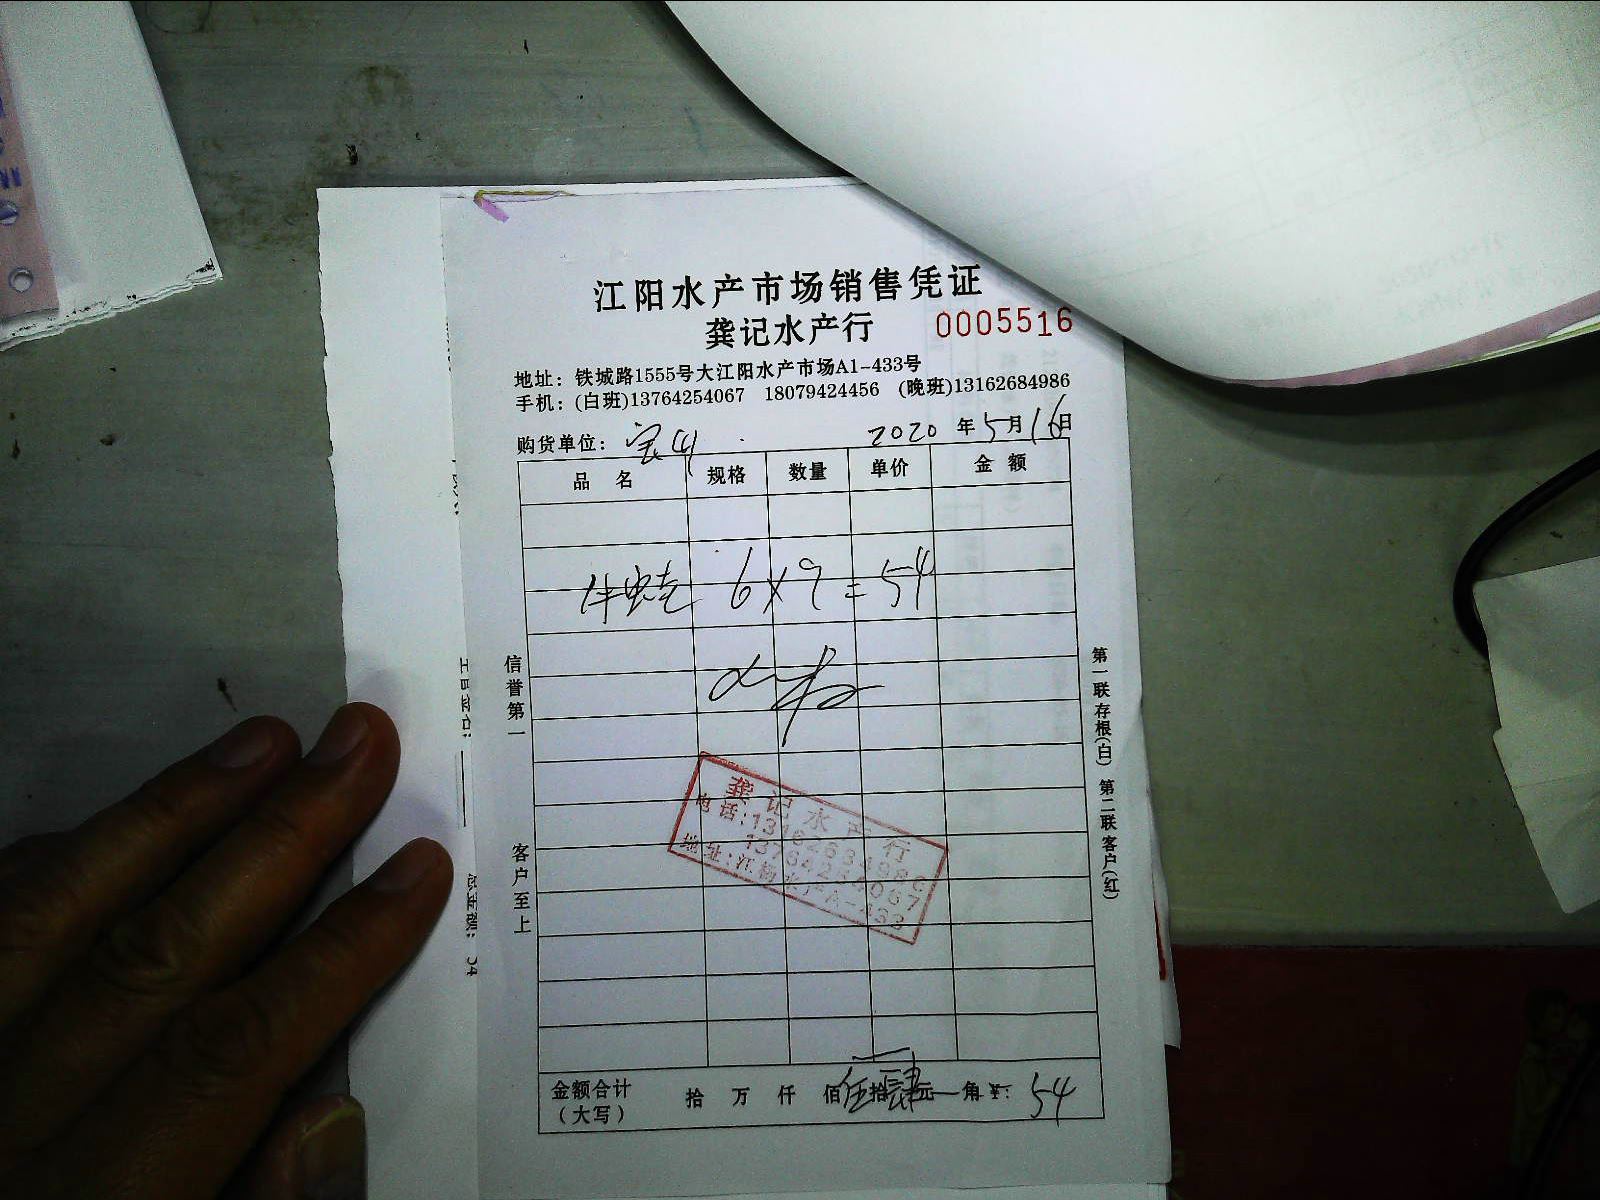 江阳水产市场销售凭证
龚记水产行 0005516
地址：铁城路1555号大江阳水产市场A1-433号
手机：(白班)13764254067 18079424456 (晚班)13162684986
购货单位： 2020 年 5 月 16 日
品名 规格 数量 单价 金额
牛蛙 6×9=54
信誉第一 客户至上
第一联存根(白) 第二联客户(红)
龚记水产行
电话:1316268498
13764254067
地址:江阳水产A-433
金额合计（大写） 拾 万 仟 佰 伍拾肆元 角 ¥: 54
总金额: 54